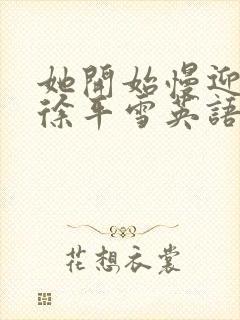 她開始慢迎
徐平雪英語
花想衣裳